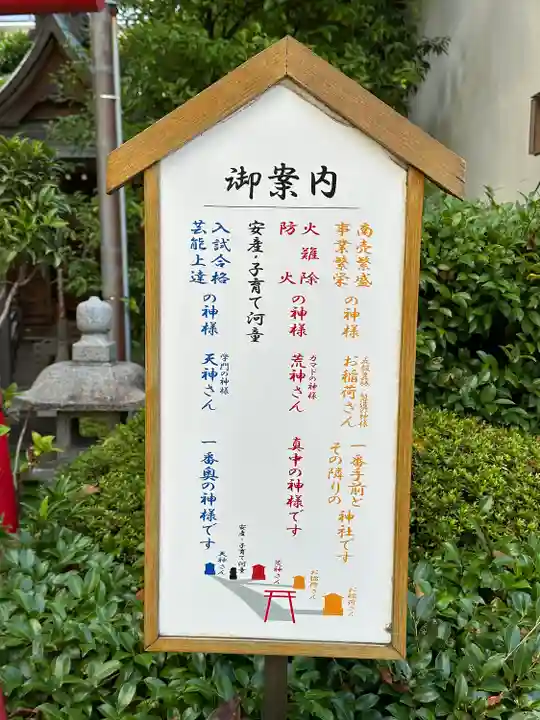 御案内
商売繁盛
事業繁栄
の神様
五穀豊穣
お稲荷さん
一番手前と
その隣りの
神社です
火難除
防火
の神様
カマドの神様
荒神さん
真中の神様です
安産・子育て河童
入試合格
芸能上達
の神様
学門の神様
天神さん
一番奥の神様です
天神さん
安産・子育て河童
荒神さん
お稲荷さん
お稲荷さん